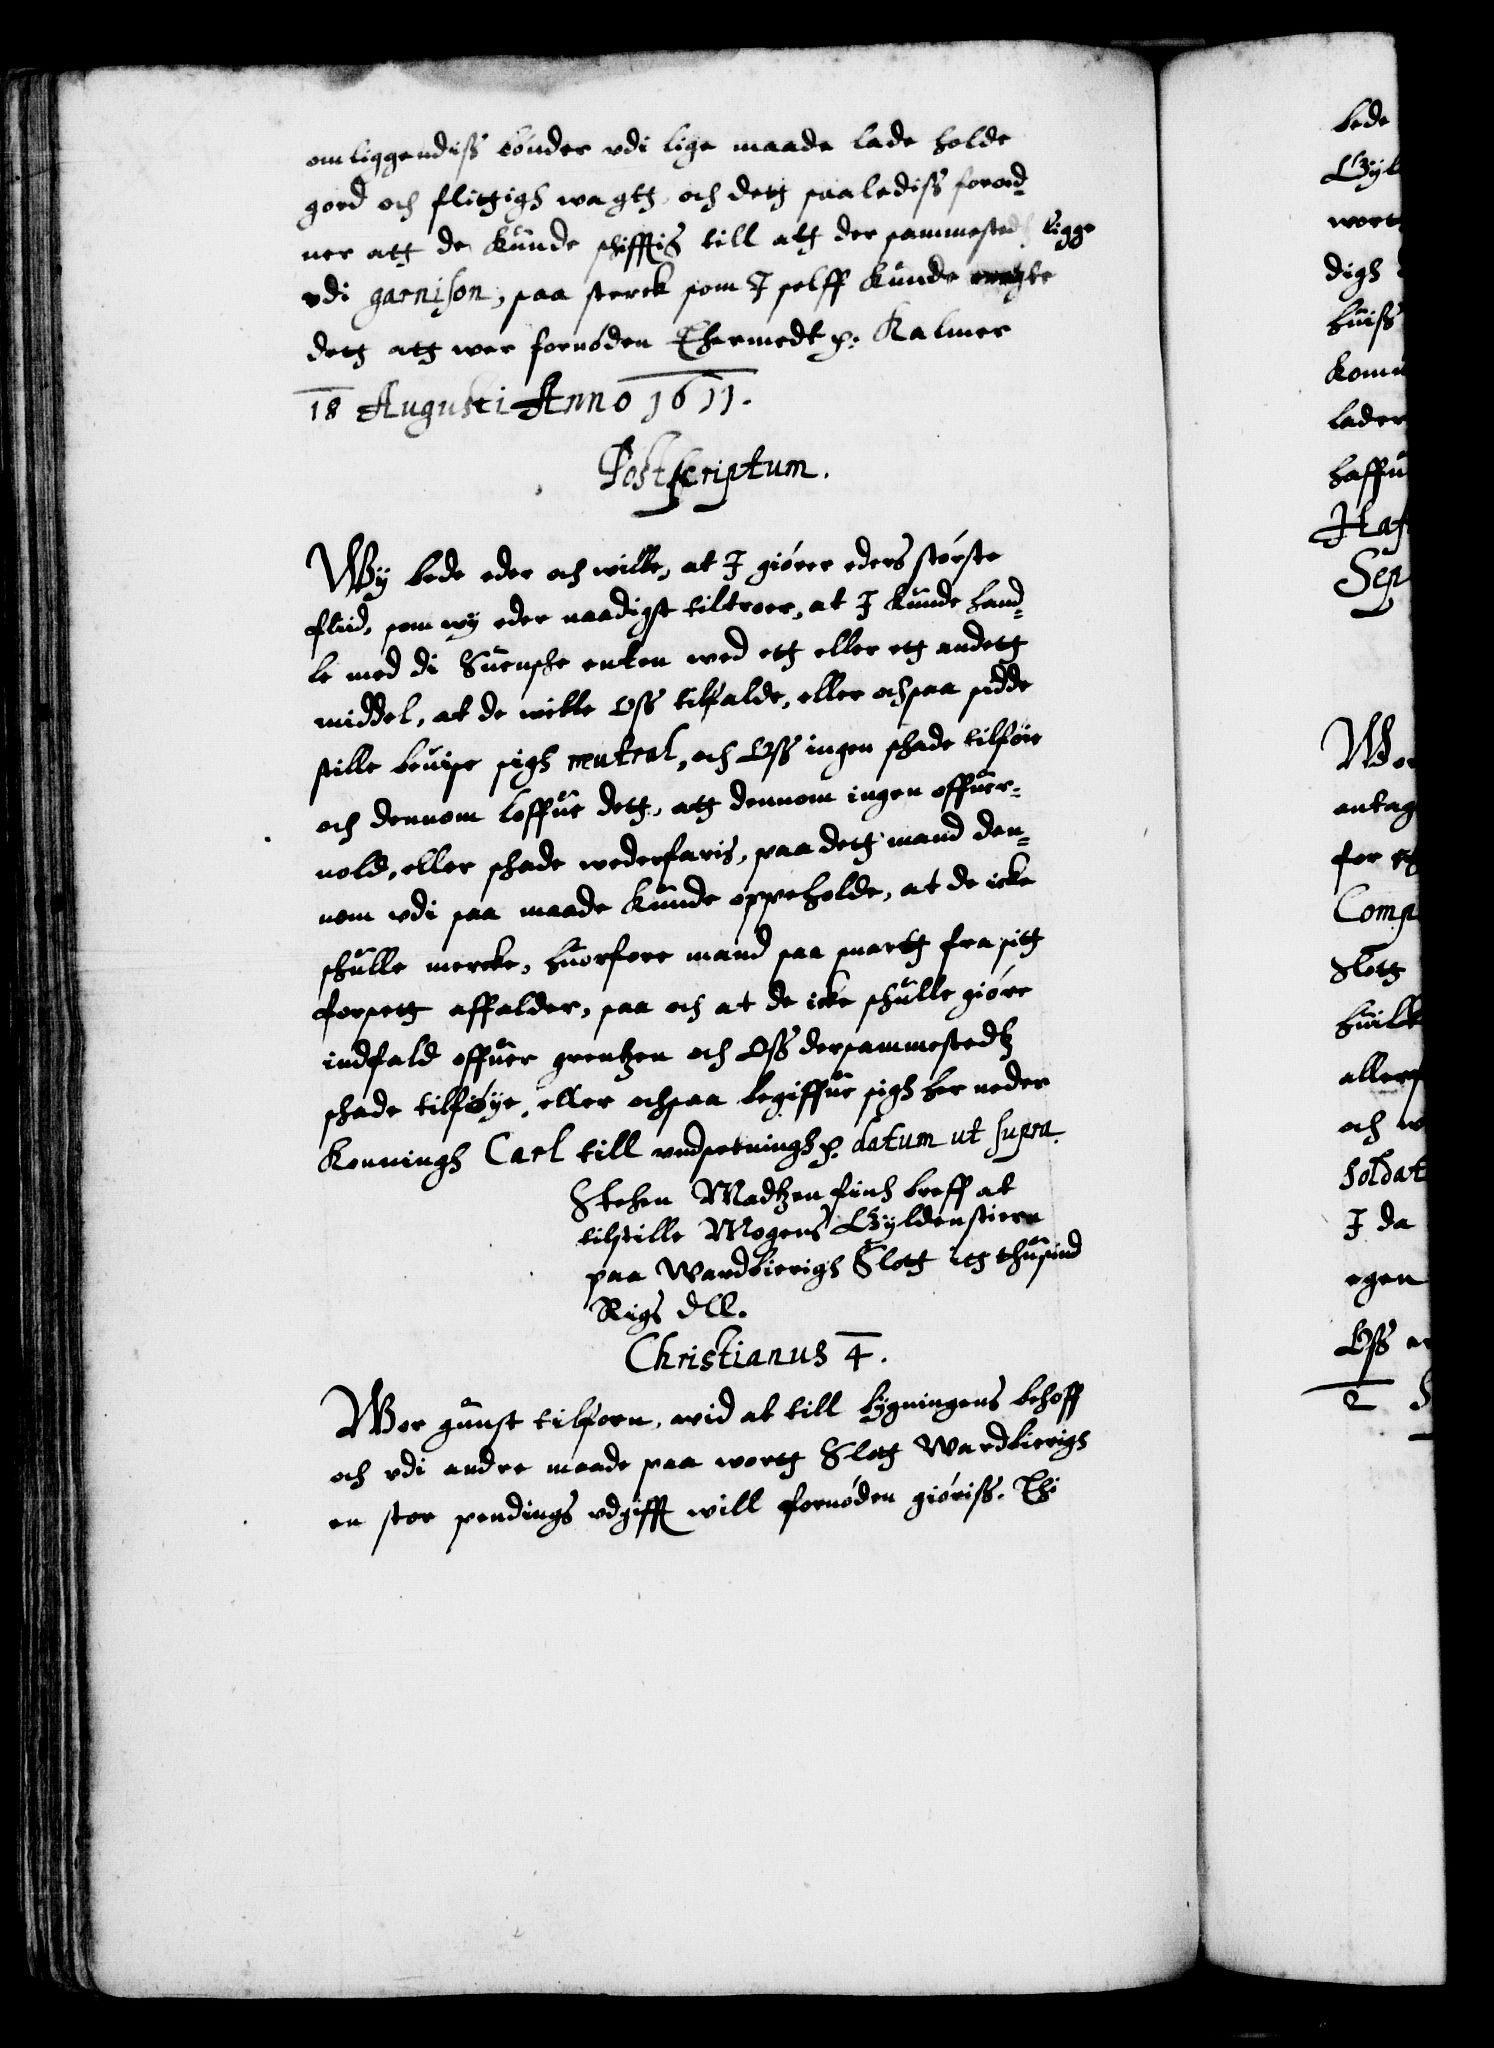 omliggendiss bönder vdi lige maade lade holde
gord och flittigh wagtt, och dett saalediss forord-
ner att de kunde skifftis till att der sammestedtz ligge
vdi garnison, saa sterck som I self kunde eragte
dett att wer fornöden Thermedt p. Kalmer
18 Augusti Anno 1611.
Postscriptum.
Wy bede eder och wille, at I giörer eders störste
fliid, som wy eder naadigst tiltroer, at I kunde hand-
le med di Suenske enten wed ett eller et andett
middel, at de wille Oss tilfalde, eller ochsaa sidde
stille beuise sigh neutral, och Oss ingen skade tilföie
och dennom loffue dett, att dennom ingen offuer-
uold, eller skade wederfaris, paa dett mand den-
nom vdi saa maade kunde oppeholde, at de icke
skulle mercke, huorfore mand saa snartt fra sitt
forsett affalder, saa och at de icke skulle giöre
indfald offuer grentzen och Oss dersammestedtz
skade tilföye, eller ochsaa begiffue sigh her neder
Konningh Carl till vndsetningh p. datum ut supra.
Stehen Madtzen finh breff at
tilstille Mogens Gyldenstiern
paa Wardbierigh Slott itt thusind
Rigs dll.
Christianus 4.
Wor gunst tilforn, wid at till bygningens behoff
och vdi andre maade paa wortt Slott Wardbierigh
en stor pendings vdgifft will fornöden giöriss. Thi
bede
Gyl
wort
digh
huiss
Komu
lader
haffu
Haf
Sep
Wor
antag
for
Comp
Slott
huilk
allers
och w
Soldat
I da
egen
Oss
2